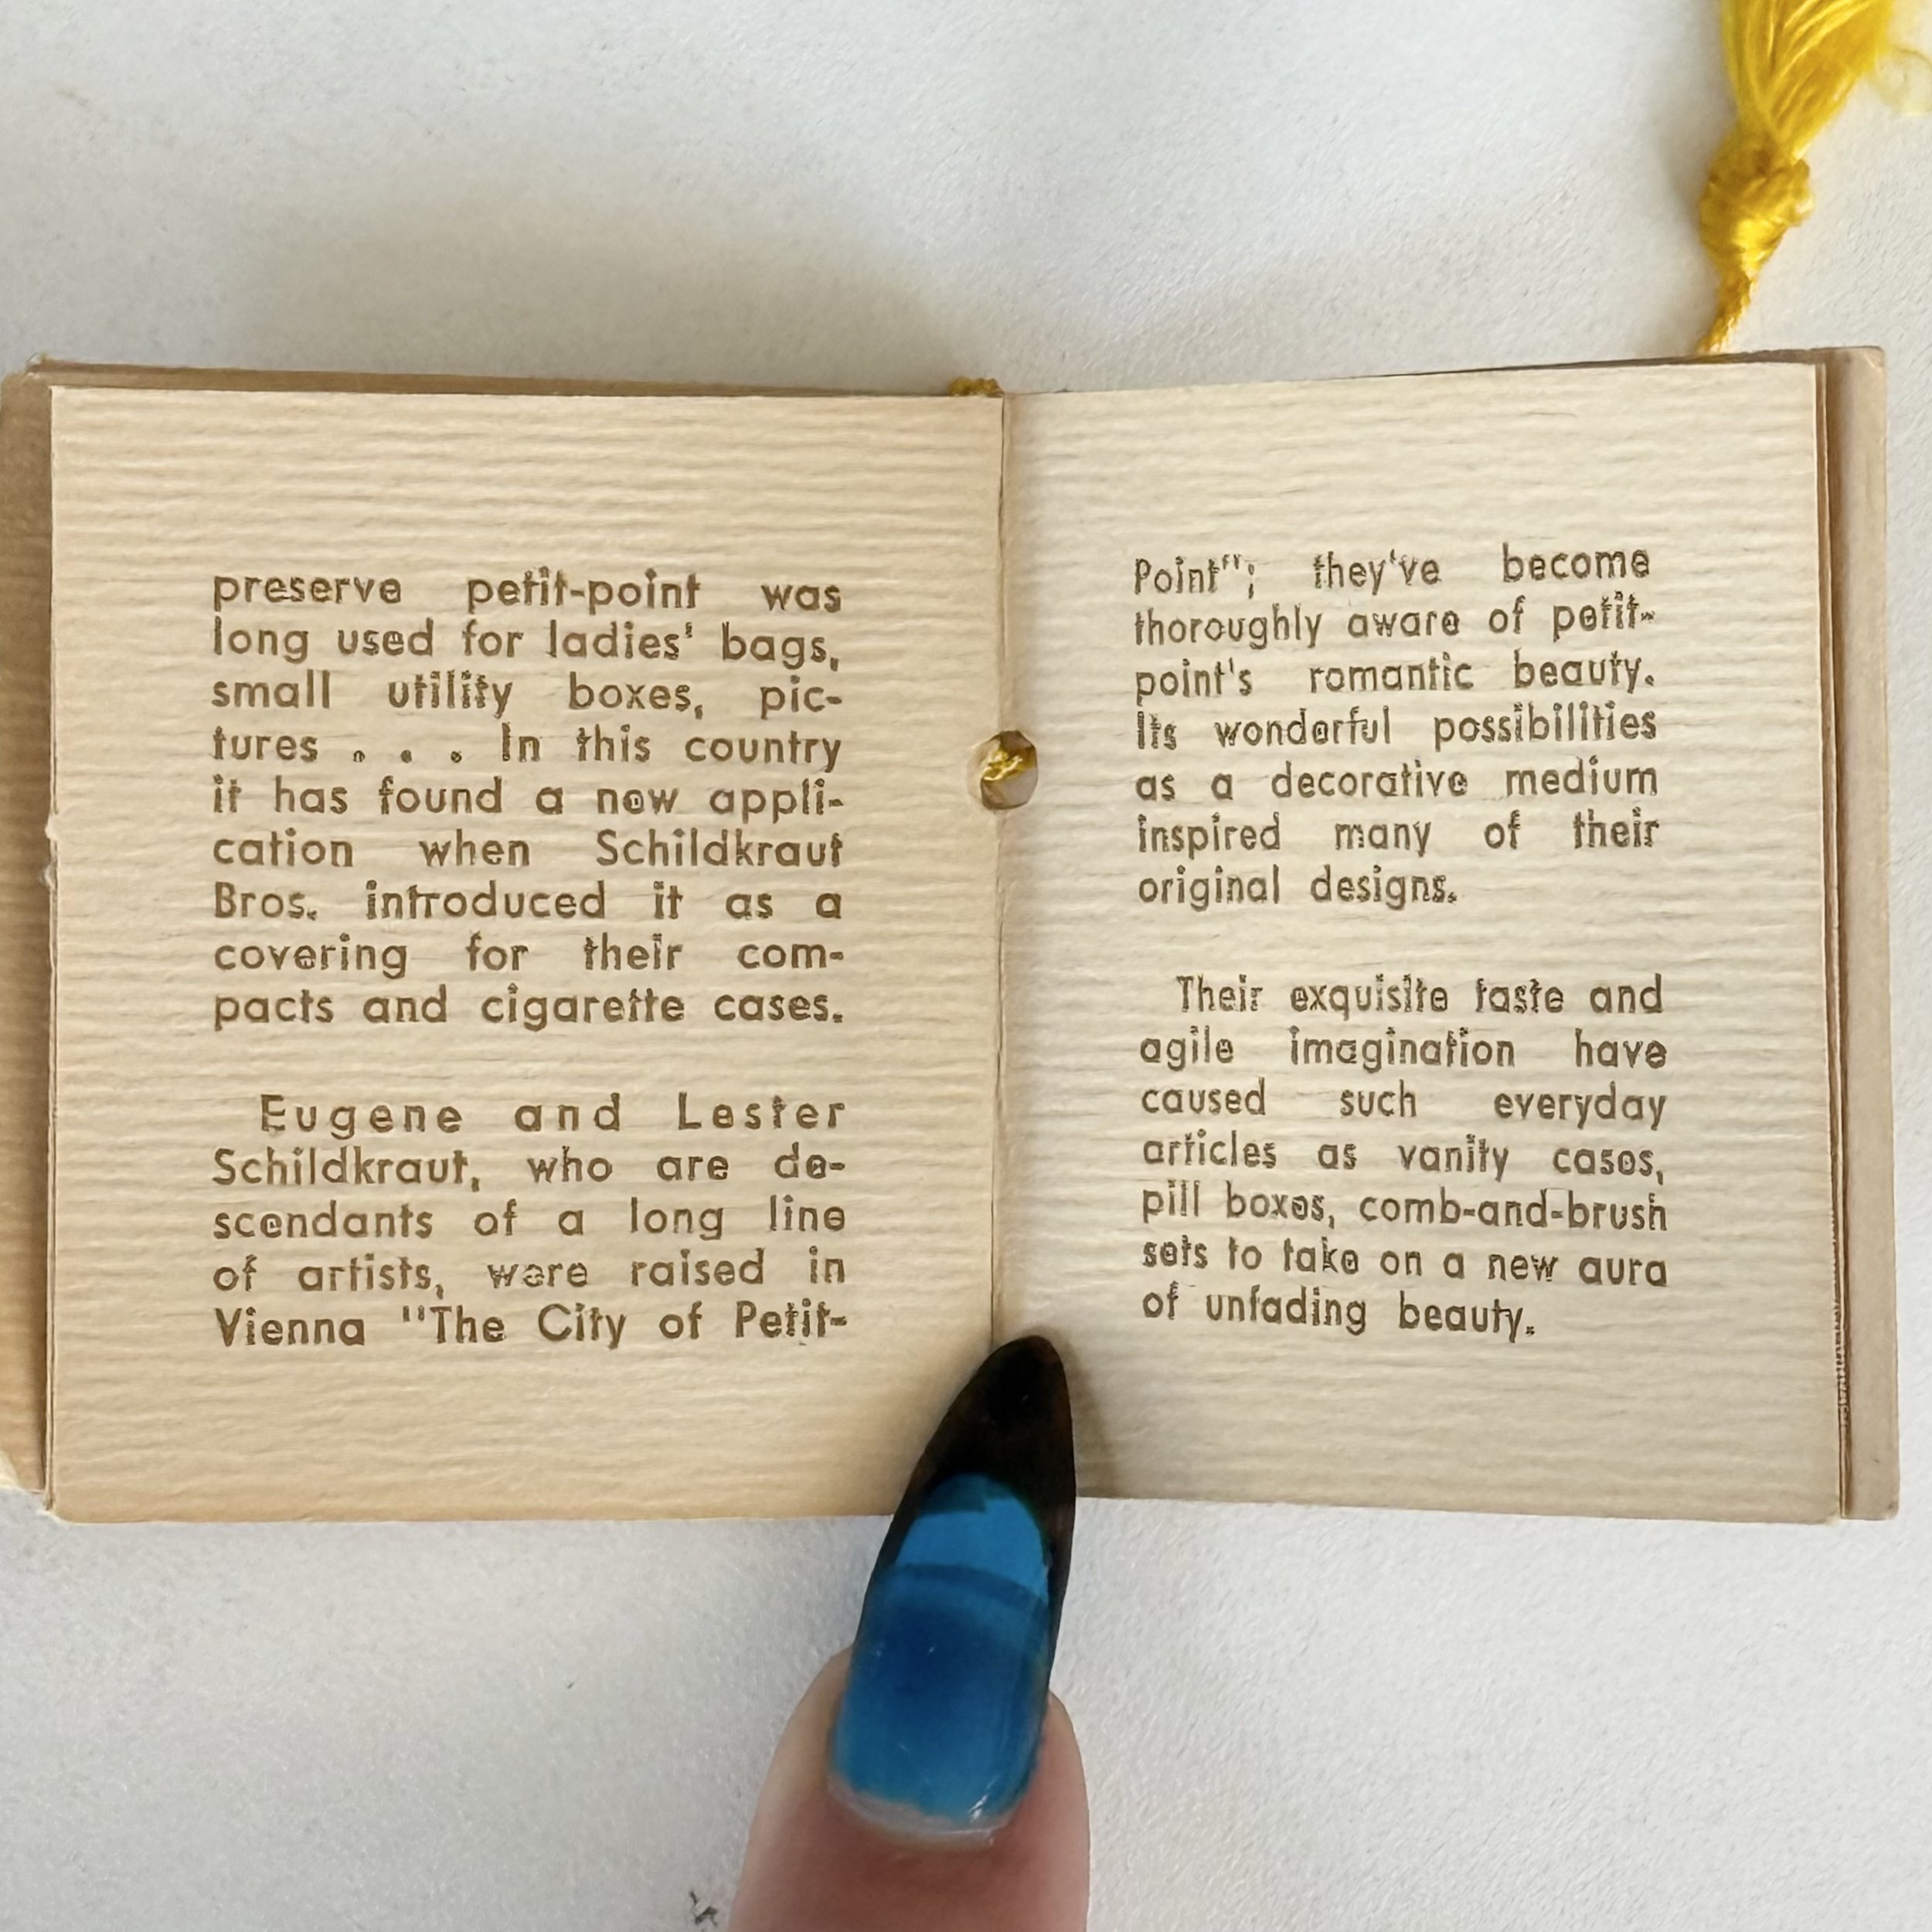 preserve petit-point was
long used for ladies' bags,
small utility boxes, pic-
tures . . . In this country
it has found a new appli-
cation when Schildkraut
Bros. introduced it as a
covering for their com-
pacts and cigarette cases.
Eugene and Lester
Schildkraut, who are de-
scendants of a long line
of artists, were raised in
Vienna "The City of Petit-
Point"; they've become
thoroughly aware of petit-
point's romantic beauty.
Its wonderful possibilities
as a decorative medium
inspired many of their
original designs.
Their exquisite taste and
agile imagination have
caused such everyday
articles as vanity cases,
pill boxes, comb-and-brush
sets to take on a new aura
of unfading beauty.